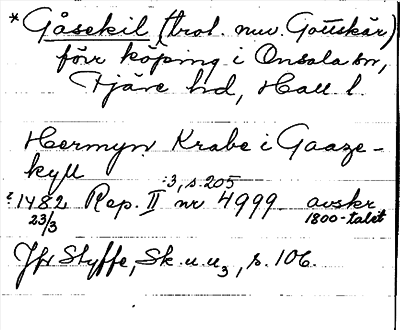 * Gåsekil (trol. nuv. Gottskär)
förr köping i Onsala sn,
Fjäre hd, Hall. l.
Hermyn Krabe i Gaaze-
kyll
:3, s. 205
1482 Rep. II nr 4999 avskr
23/3 1800-talet
Jfr Styffe, Sk. u. u3, s. 106.